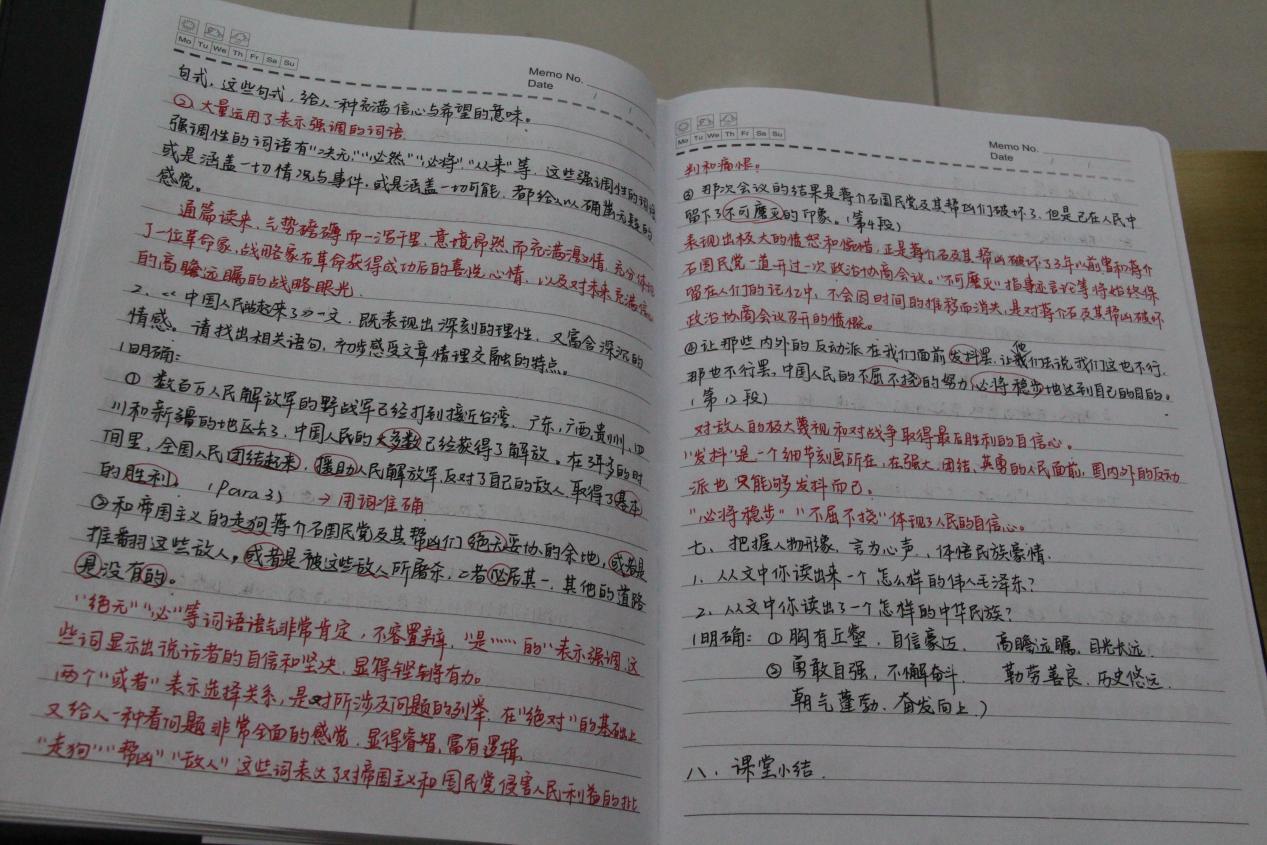 Mo Tu We Th Fr Sa Su
Memo No.
Date
句式,这些句式,给人一种充满信心与希望的意味。
②大量运用了表示强调的词语
强调性的词语有"决无""必然""必将""从来"等,这些强调性的词语
或是涵盖一切情况与事件,或是涵盖一切可能,都给人以确凿无疑的
感觉。
通篇读来,气势磅礴而一泻千里,意境昂然而充满激情,充分体现
了一位革命家,战略家在革命获得成功后的喜悦心情,以及对未来充满信心
的高瞻远瞩的战略眼光.
2、《中国人民站起来了》一文,既表现出深刻的理性,又富含深沉的
情感。请找出相关语句,初步感受文章情理交融的特点。
(明确:
①数百万人民解放军的野战军已经打到接近台湾,广东,广西,贵州,四
川和新疆的地区去了,中国人民的大多数已经获得了解放。在3年多的时
间里,全国人民团结起来,援助人民解放军,反对了自己的敌人,取得了基本
的胜利 (Para 3) →用词准确
②和帝国主义的走狗蒋介石国民党及其帮凶们绝无妥协的余地,或者是
推翻这些敌人,或者是被这些敌人所屠杀,二者必居其一,其他的道路
是没有的。
"绝无""必"等词语语气非常肯定,不容置辩,"是……的"表示强调,这
些词显示出说话者的自信和坚决,显得铿锵有力。
两个"或者"表示选择关系,是对所涉及问题的列举,在"绝对"的基础上
又给人一种看问题非常全面的感觉,显得睿智,富有逻辑,
"走狗""帮凶""敌人"这些词表达了对帝国主义和国民党侵害人民利益的批
Mo Tu We Th Fr Sa Su
Memo No.
Date
判和痛恨。
③那次会议的结果是蒋介石国民党及其帮凶们破坏了,但是已在人民中
留下了不可磨灭的印象。(第4段)
表现出极大的愤怒和惋惜,正是蒋介石及其帮凶破坏了3年以前曾和蒋介
石国民党一道开过一次政治协商会议。"不可磨灭"指事证言论等将始终保
留在人们的记忆中,不会因时间的推移而消失,是对蒋介石及其帮凶破坏
政治协商会议召开的愤慨。
④让那些内外的反动派在我们面前发抖罢,让他们去说我们这也不行
那也不行罢,中国人民的不屈不挠的努力必将稳步地达到自己的目的。
(第12段)
对敌人的极大蔑视和对战争取得最后胜利的自信心。
"发抖"是一个细节刻画所在,在强大、团结、英勇的人民面前,国内外的反动
派也只能够发抖而已。
"必将稳步""不屈不挠"体现了人民的自信心。
七、把握人物形象,言为心声,体悟民族豪情.
1、从文中你读出来一个怎么样的伟人毛泽东?
2、从文中你读出了一个怎样的中华民族?
(明确:①胸有丘壑,自信豪迈, 高瞻远瞩,目光长远.
②勇敢自强,不懈奋斗, 勤劳善良,历史悠远.
朝气蓬勃,奋发向上.)
八、课堂小结.